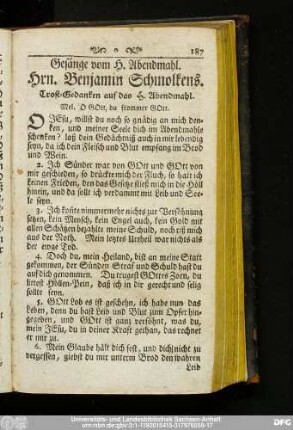 187
Gesänge vom H. Abendmahl.
Hrn. Benjamin Schmolkens.
Trost-Gedanken auf das H. Abendmahl.
Mel. O GOtt, du frommer GOtt.
O JEsu, willst du noch so gnädig an mich den-
ken, und meiner Seele dich im Abendmahle
schenken? laß dein Gedächtniß auch in mir lebendig
seyn, da ich dein Fleisch und Blut empfang im Brod
und Wein.
2. Ich Sünder war von GOtt und GOtt von
mir geschieden, so drückte mich der Fluch, so hatt ich
keinen Frieden, den das Gesetze stieß mich in die Höll
hinein, und da sollt ich verdammt mit Leib und See-
le seyn.
3. Ich konte nimmermehr nichts zur Versöhnung
setzen, kein Mensch, kein Engel auch, kein Gold mit
allen Schätzen bezahlte meine Schuld, noch riß mich
aus der Noth. Mein letztes Urtheil war nichts als
der ewge Tod.
4. Doch du, mein Heiland, bist an meine Statt
gekommen, der Sünden Straf und Schuld hast du
auf dich genommen. Du trugest GOttes Zorn, du
littest Höllen-Pein, daß ich in dir gerecht und selig
sollte seyn.
5. GOtt Lob es ist geschehn, ich habe nun das
Leben, denn du hast Leib und Blut zum Opfer hin-
gegeben, und GOtt ist ganz versöhnt, was du,
mein JEsu, in deiner Kraft gethan, das rechnet
er mir zu.
6. Mein Glaube hält dich fest, und dich nicht zu
vergessen, giebst du mir unterm Brod den wahren
Leib
Universitäts- und Landesbibliothek Sachsen-Anhalt
DFG